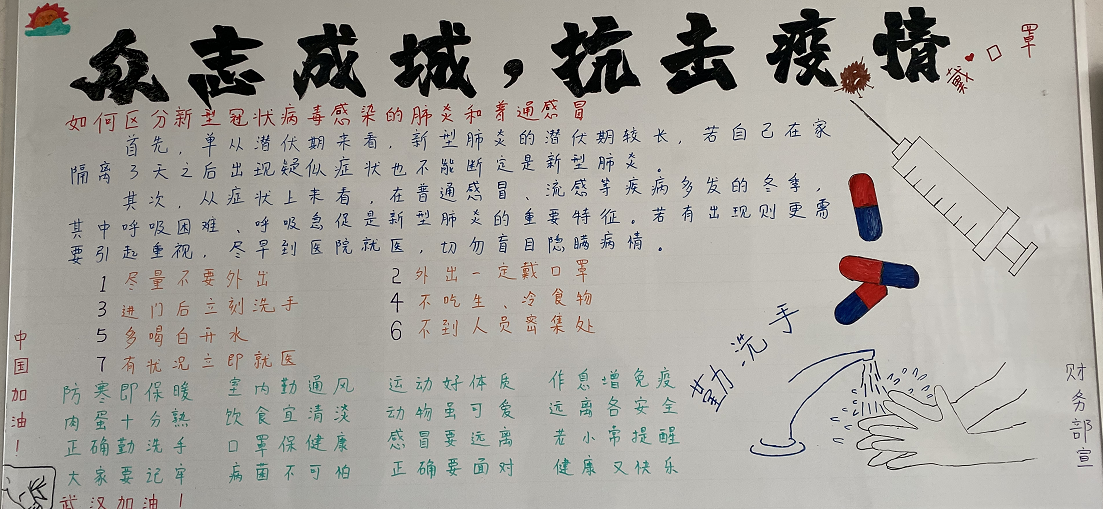 众志成城，抗击疫情
戴口罩
如何区分新型冠状病毒感染的肺炎和普通感冒
首先，单从潜伏期来看，新型肺炎的潜伏期较长，若自己在家
隔离3天之后出现疑似症状也不能断定是新型肺炎。
其次，从症状上来看，在普通感冒、流感等疾病多发的冬季，
其中呼吸困难、呼吸急促是新型肺炎的重要特征。若有出现则更需
要引起重视，尽早到医院就医，切勿盲目隐瞒病情。
1 尽量不要外出 2 外出一定戴口罩
3 进门后立刻洗手 4 不吃生、冷食物
5 多喝白开水 6 不到人员密集处
7 有状况立即就医
防寒即保暖 室内勤通风 运动好体质 作息增免疫
肉蛋十分熟 饮食宜清淡 动物虽可爱 远离各安全
正确勤洗手 口罩保健康 感冒要远离 老小常提醒
大家要记牢 病菌不可怕 正确要面对 健康又快乐
武汉加油！
中国加油！
勤洗手
财务部宣